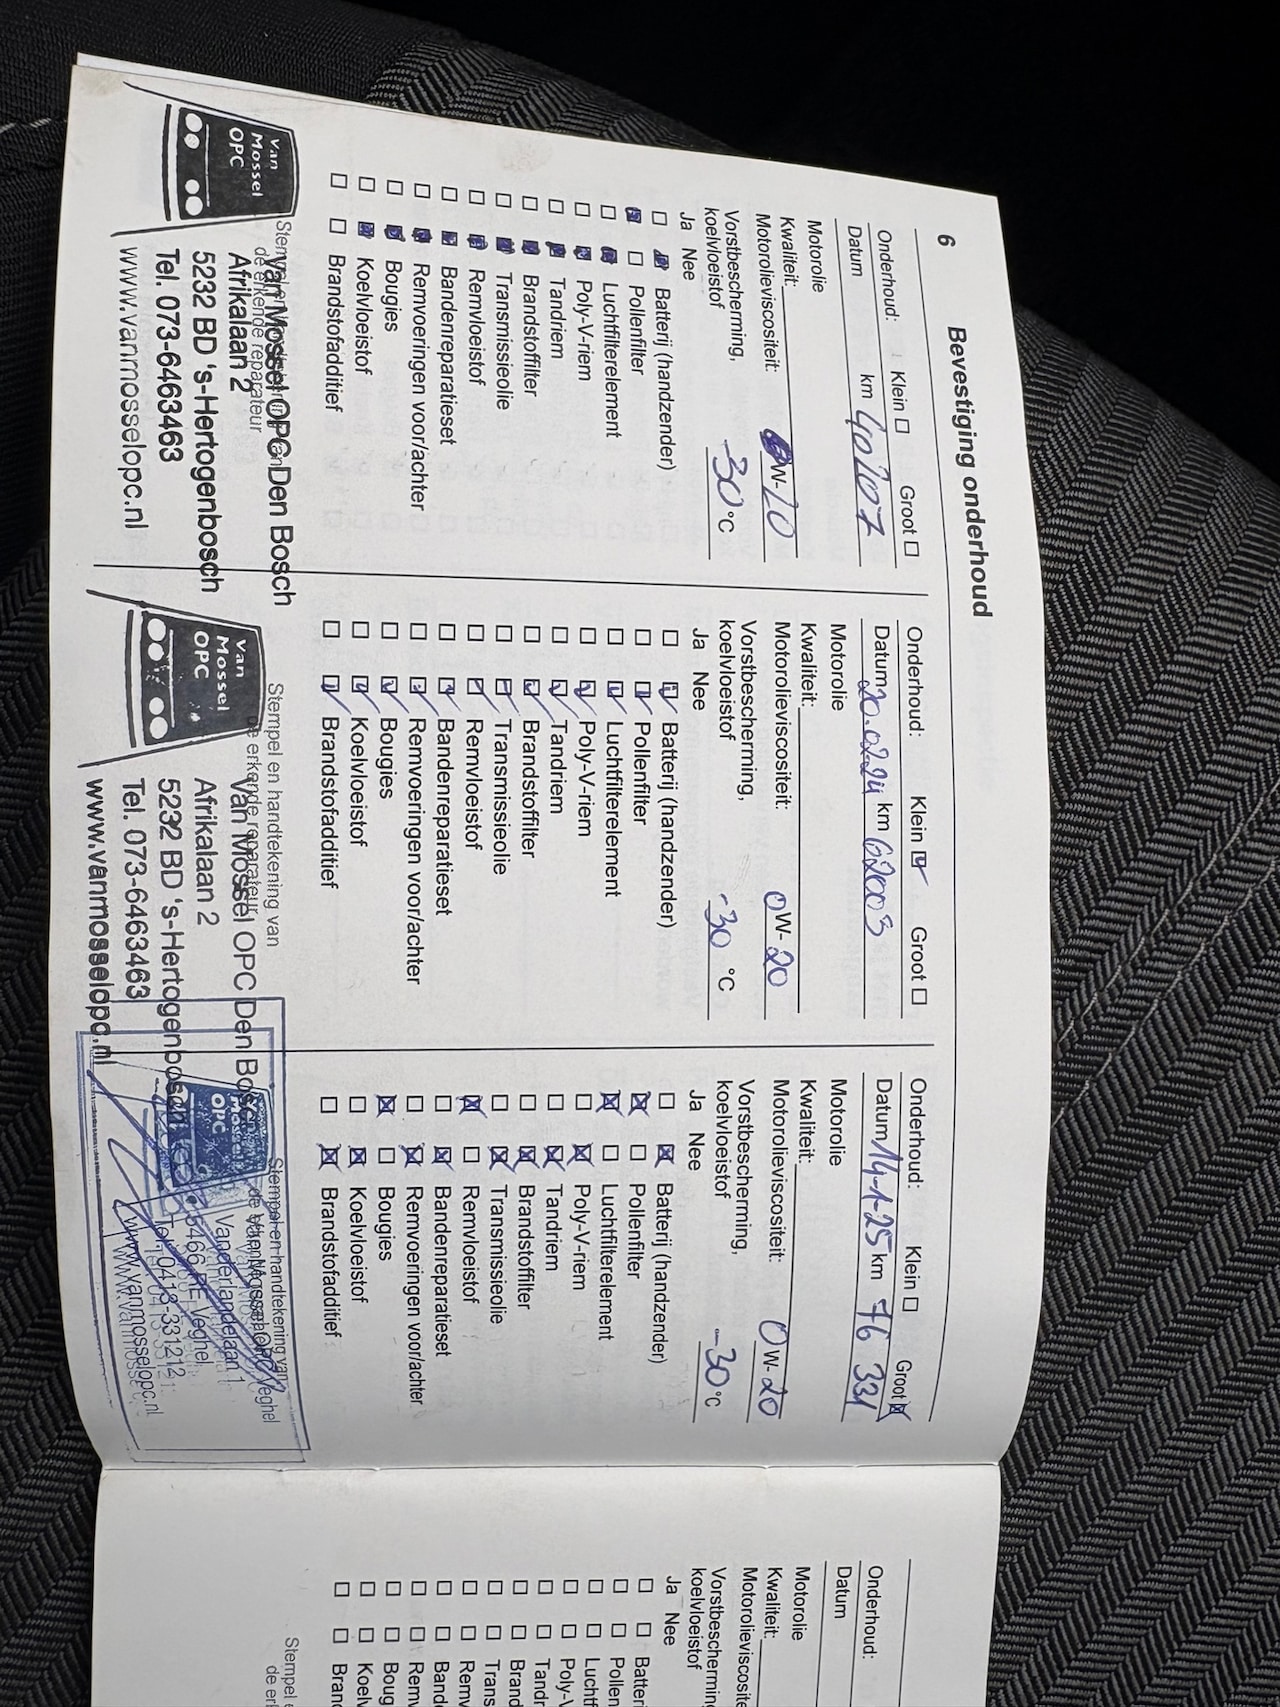 6
Bevestiging onderhoud
Onderhoud: Klein Groot
Datum km 40207
Motorolie
Kwaliteit:
Motorolieviscositeit: W-20
Vorstbescherming,
koelvloeistof -30 °C
Ja Nee
Batterij (handzender)
Pollenfilter
Luchtfilterelement
Poly-V-riem
Tandriem
Brandstoffilter
Transmissieolie
Remvloeistof
Bandenreparatieset
Remvoeringen voor/achter
Bougies
Koelvloeistof
Brandstofadditief
de erkende reparateur
Van
Mossel
OPC
Van Mossel OPC Den Bosch
Afrikalaan 2
5232 BD 's-Hertogenbosch
Tel. 073-6463463
www.vanmosselopc.nl
Onderhoud: Klein Groot
Datum 20.02.24 km 62003
Motorolie
Kwaliteit:
Motorolieviscositeit: 0W-20
Vorstbescherming,
koelvloeistof -30 °C
Ja Nee
Batterij (handzender)
Pollenfilter
Luchtfilterelement
Poly-V-riem
Tandriem
Brandstoffilter
Transmissieolie
Remvloeistof
Bandenreparatieset
Remvoeringen voor/achter
Bougies
Koelvloeistof
Brandstofadditief
Stempel en handtekening van
de erkende reparateur
Van
Mossel
OPC
Van Mossel OPC Den Bosch
Afrikalaan 2
5232 BD 's-Hertogenbosch
Tel. 073-6463463
www.vanmosselopc.nl
Onderhoud: Klein Groot
Datum 14-1-25 km 76 331
Motorolie
Kwaliteit:
Motorolieviscositeit: 0W-20
Vorstbescherming,
koelvloeistof -30 °C
Ja Nee
Batterij (handzender)
Pollenfilter
Luchtfilterelement
Poly-V-riem
Tandriem
Brandstoffilter
Transmissieolie
Remvloeistof
Bandenreparatieset
Remvoeringen voor/achter
Bougies
Koelvloeistof
Brandstofadditief
Stempel en handtekening van
Mossel
OPC
Vanderlandelaan 1
5466 Veghel
Tel. 0413-331212
www.vanmosselopc.nl
Onderhoud:
Datum
Motorolie
Kwaliteit:
Motorolieviscosite
Vorstbescherming
koelvloeistof
Ja Nee
Batter
Pollen
Luchtf
Poly-V
Tandr
Brand
Trans
Remv
Band
Remv
Boug
Koelv
Bran
Stempel e
de er